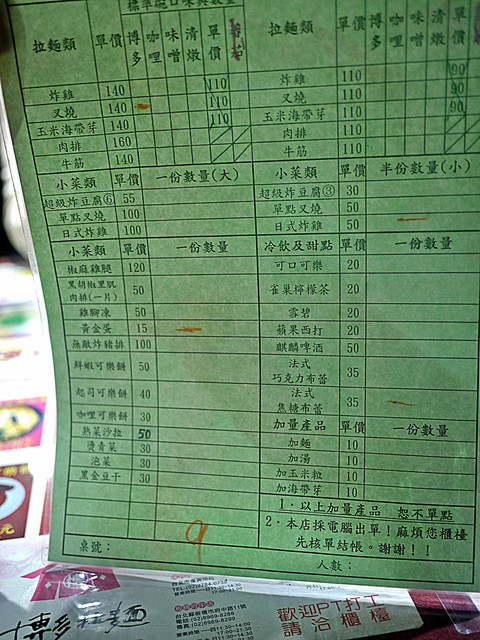 標準碗口味與數量
拉麵類 單價 博多 咖哩 味噌 清燉 單價 拉麵類 單價 博多 咖哩 味噌 清燉 單價
炸雞 140 110 炸雞 110 90
叉燒 140 110 叉燒 110 90
玉米海帶芽 140 110 玉米海帶芽 110 90
肉排 160 肉排 110
牛筋 140 牛筋 110
小菜類 單價 一份數量(大) 小菜類 單價 半份數量(小)
超級炸豆腐⑥ 55 超級炸豆腐③ 30
單點叉燒 100 單點叉燒 50
日式炸雞 100 日式炸雞 50
小菜類 單價 一份數量 冷飲及甜點 單價 一份數量
椒麻雞腿 120 可口可樂 20
黑胡椒里肌肉排(一片) 50 雀巢檸檬茶 20
雞腳凍 50 雪碧 20
黃金蛋 15 蘋果西打 20
無敵炸豬排 100 麒麟啤酒 50
鮮蝦可樂餅 50 法式巧克力布蕾 35
起司可樂餅 40 法式焦糖布蕾 35
咖哩可樂餅 30 加量產品 單價 一份數量
熟菜沙拉 50 加麵 10
燙青菜 30 加湯 10
泡菜 30 加玉米粒 10
黑金豆干 30 加海帶芽 10
1．以上加量產品 恕不單點
2．本店採電腦出單！麻煩您櫃檯
先核單結帳。謝謝！！
9
桌號： 人數：
博多拉麵
歡迎PT打工
請洽櫃檯